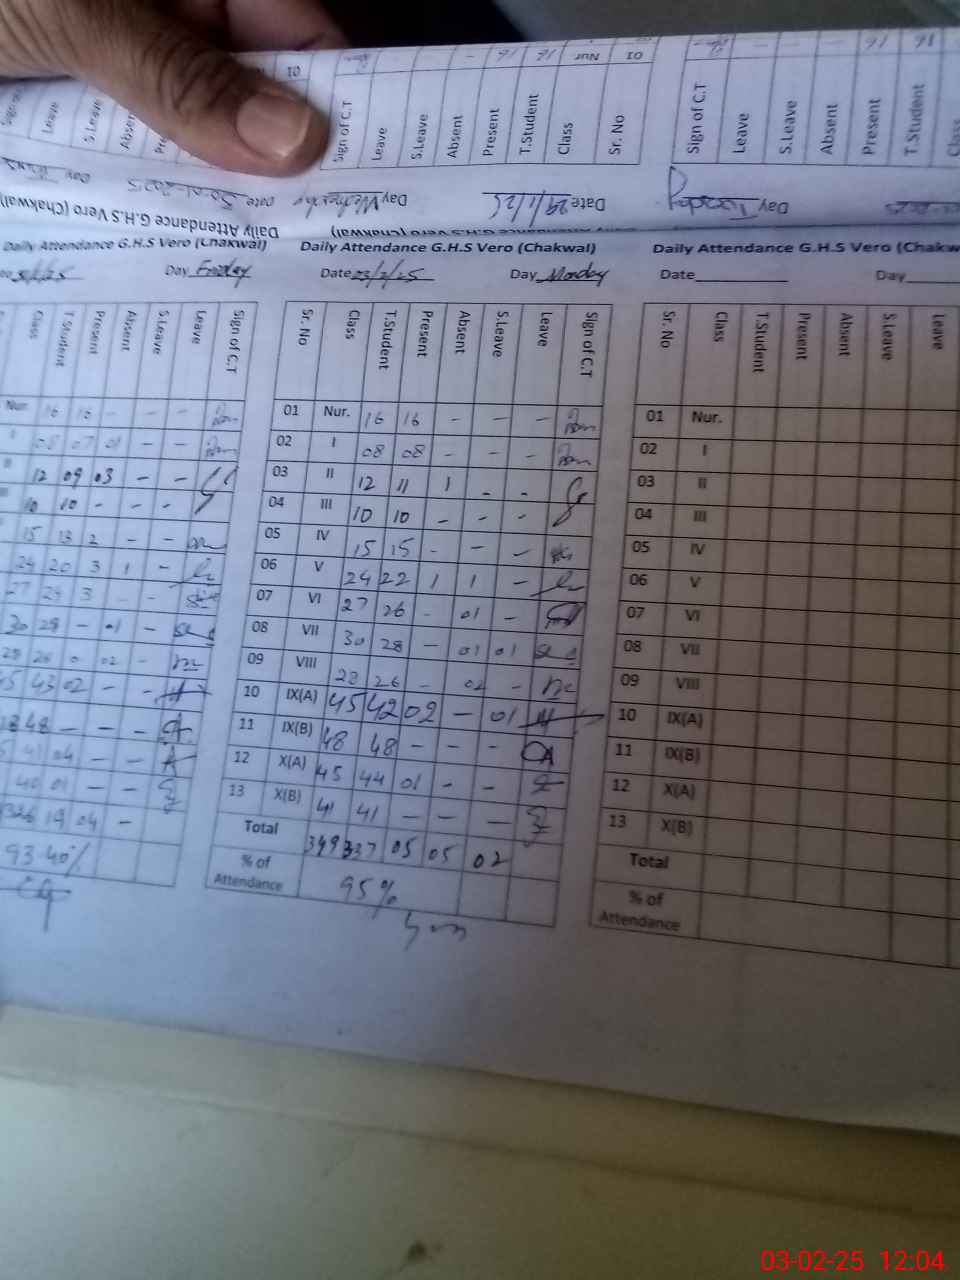 Sign of C.T Leave S.Leave Absent Present T.Student Class Sr. No
Sign of C.T Leave S.Leave Absent Present T.Student
01 Nur 16 16 -
16 16
Date 29/1/25 Day
Day Tuesday
Daily Attendance G.H.S Vero (Chakwal)
Daily Attendance G.H.S Vero (Chakwal)
Day Friday
Class T.Student Present Absent S.Leave Leave Sign of C.T
Nur. 16 16 - - -
I 08 07 01 - -
II 12 09 03 - -
III 10 10 - - -
15 13 2 - -
24 20 3 1 -
27 24 3 - -
30 28 - 01 -
28 26 0 02 -
43 02 - -
48 - - -
41 04 - -
40 01 - -
326 19 04 -
93.40%
Daily Attendance G.H.S Vero (Chakwal)
Date 03/2/25 Day Monday
Sr. No Class T.Student Present Absent S.Leave Leave Sign of C.T
01 Nur. 16 16 - - -
02 I 08 08 - - -
03 II 12 11 1 - -
04 III 10 10 - - -
05 IV 15 15 - - -
06 V 24 22 1 1 -
07 VI 27 26 - 01 -
08 VII 30 28 - 01 01
09 VIII 28 26 - 02 -
10 IX(A) 45 42 02 - 01
11 IX(B) 48 48 - - -
12 X(A) 45 44 01 - -
13 X(B) 41 41 - - -
Total 349 337 05 05 02
% of Attendance 95%
Daily Attendance G.H.S Vero (Chakw
Date Day
Sr. No Class T.Student Present Absent S.Leave Leave
01 Nur.
02 I
03 II
04 III
05 IV
06 V
07 VI
08 VII
09 VIII
10 IX(A)
11 IX(B)
12 X(A)
13 X(B)
Total
% of Attendance
03-02-25 12:04